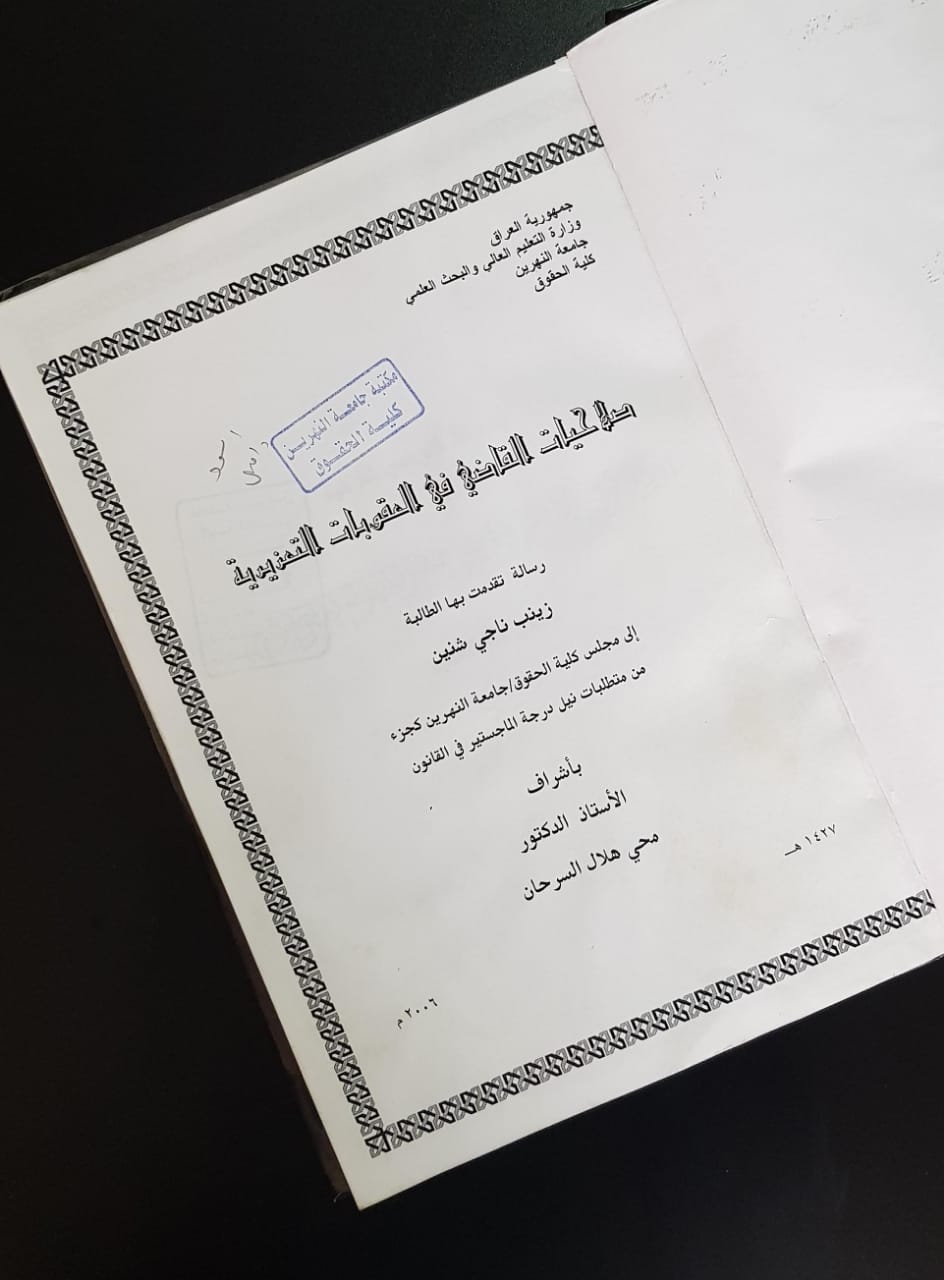 جمهورية العراق
وزارة التعليم العالي والبحث العلمي
جامعة النهرين
كلية الحقوق
مكتبة جامعة النهرين
كلية الحقوق
صلاحيات القاضي في العقوبات التعزيرية
رسالة تقدمت بها الطالبة
زينب ناجي شنين
إلى مجلس كلية الحقوق/جامعة النهرين كجزء
من متطلبات نيل درجة الماجستير في القانون
بأشراف
الأستاذ الدكتور
محي هلال السرحان
١٤٢٧ هـ
٢٠٠٦ م